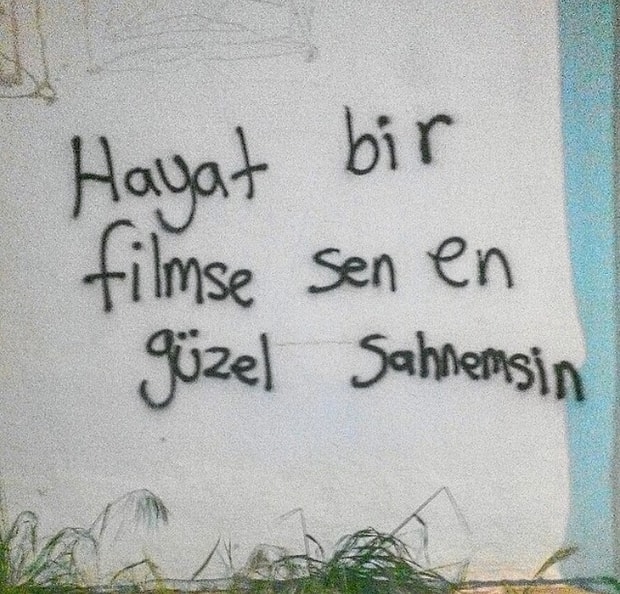 Hayat bir
filmse sen en
güzel Sahnemsin